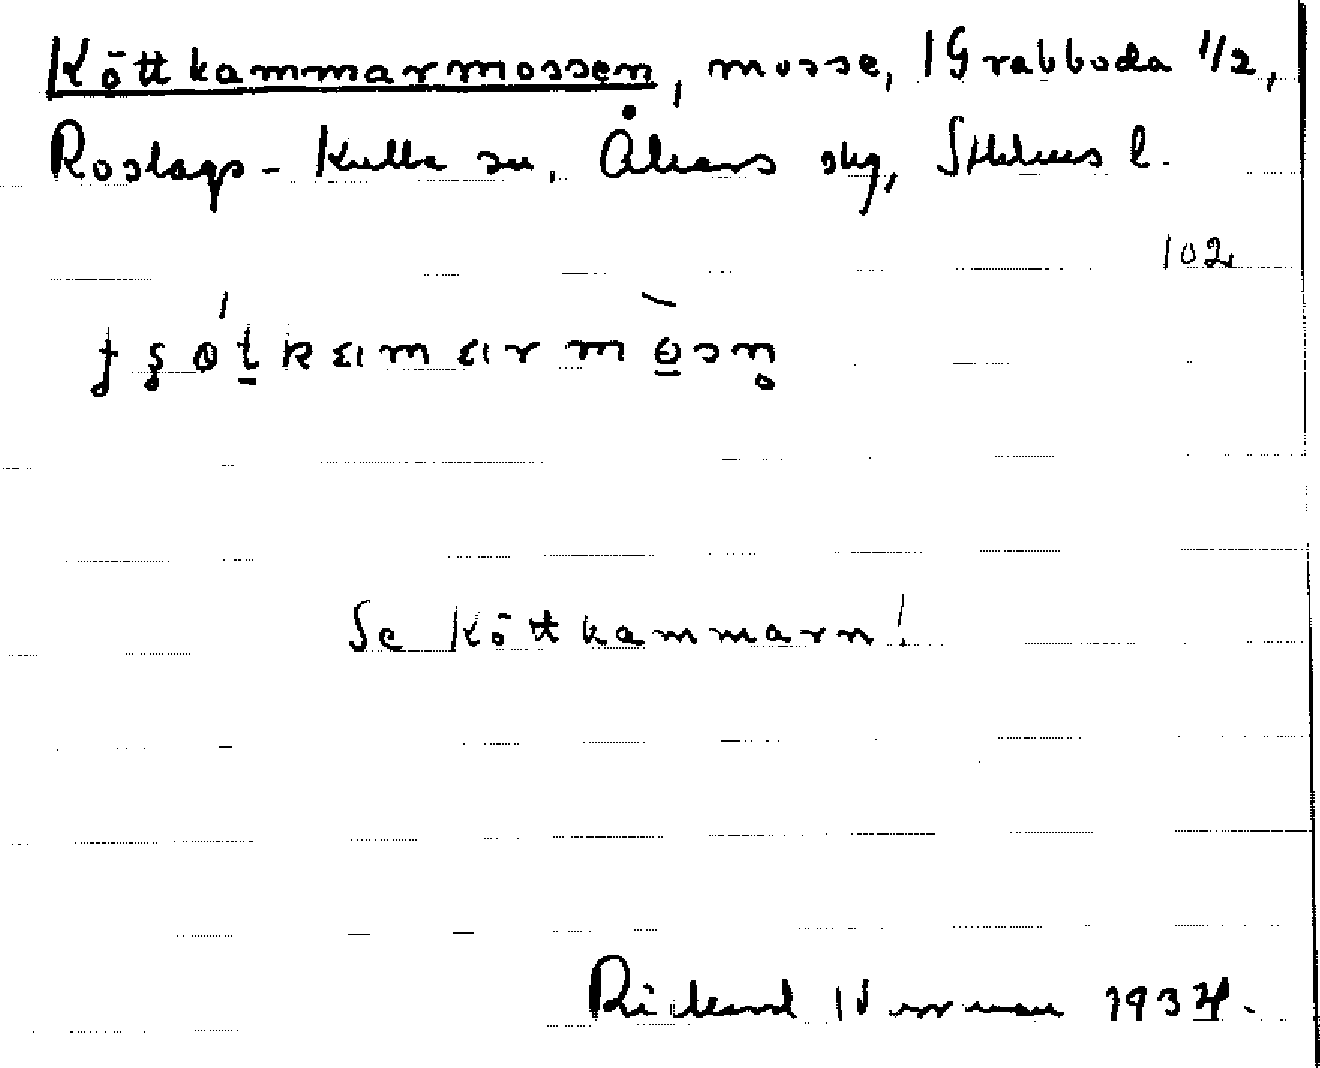 Köttkammarmossen, mosse, Grabboda 1/2,
Roslags-Kulla sn, Åkers skg, Sthlms l.
102
Se Köttkammarn!
Rickard Norman 1934.